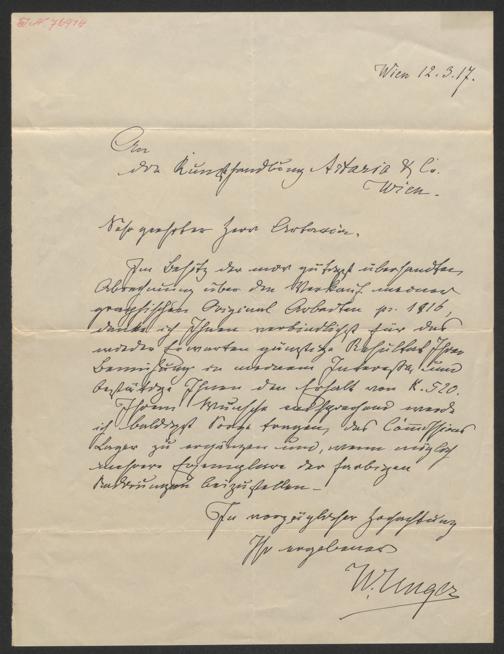 Wien 12.3.17.
An
die Kunsthandlung Artaria & Co.
Wien.
Sehr geehrter Herr Artaria.
Im Besitz der mir gütigst übersandten
Abrechnung über den Verkauf meiner
graphischen Original Arbeiten pr. 1916,
danke ich Ihnen verbindlichst für das
wieder Erwarten günstige Resultat Ihrer
Bemühung in meinem Interesse, und
bestätige Ihnen den Erhalt von K. 520.
Ihrem Wunsche entsprechend werde
ich baldigst Sorge tragen, das Commissions
Lager zu ergänzen und, wenn möglich
mehrere Exemplare der farbigen
Radirungen beizustellen –
In vorzüglicher Hochachtung
Ihr ergebener
W. Unger